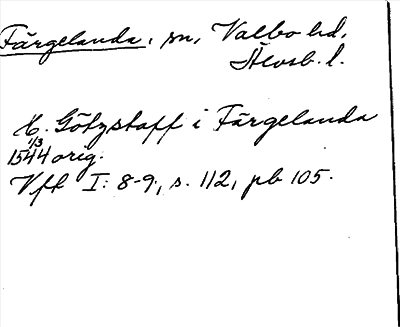 Färgelanda, sn, Valbo hd,
Älvsb. l.
H. Götzstaff i Färgelanda
1/3
1544 orig.
Vft I: 8-9, s. 112, pb 105.